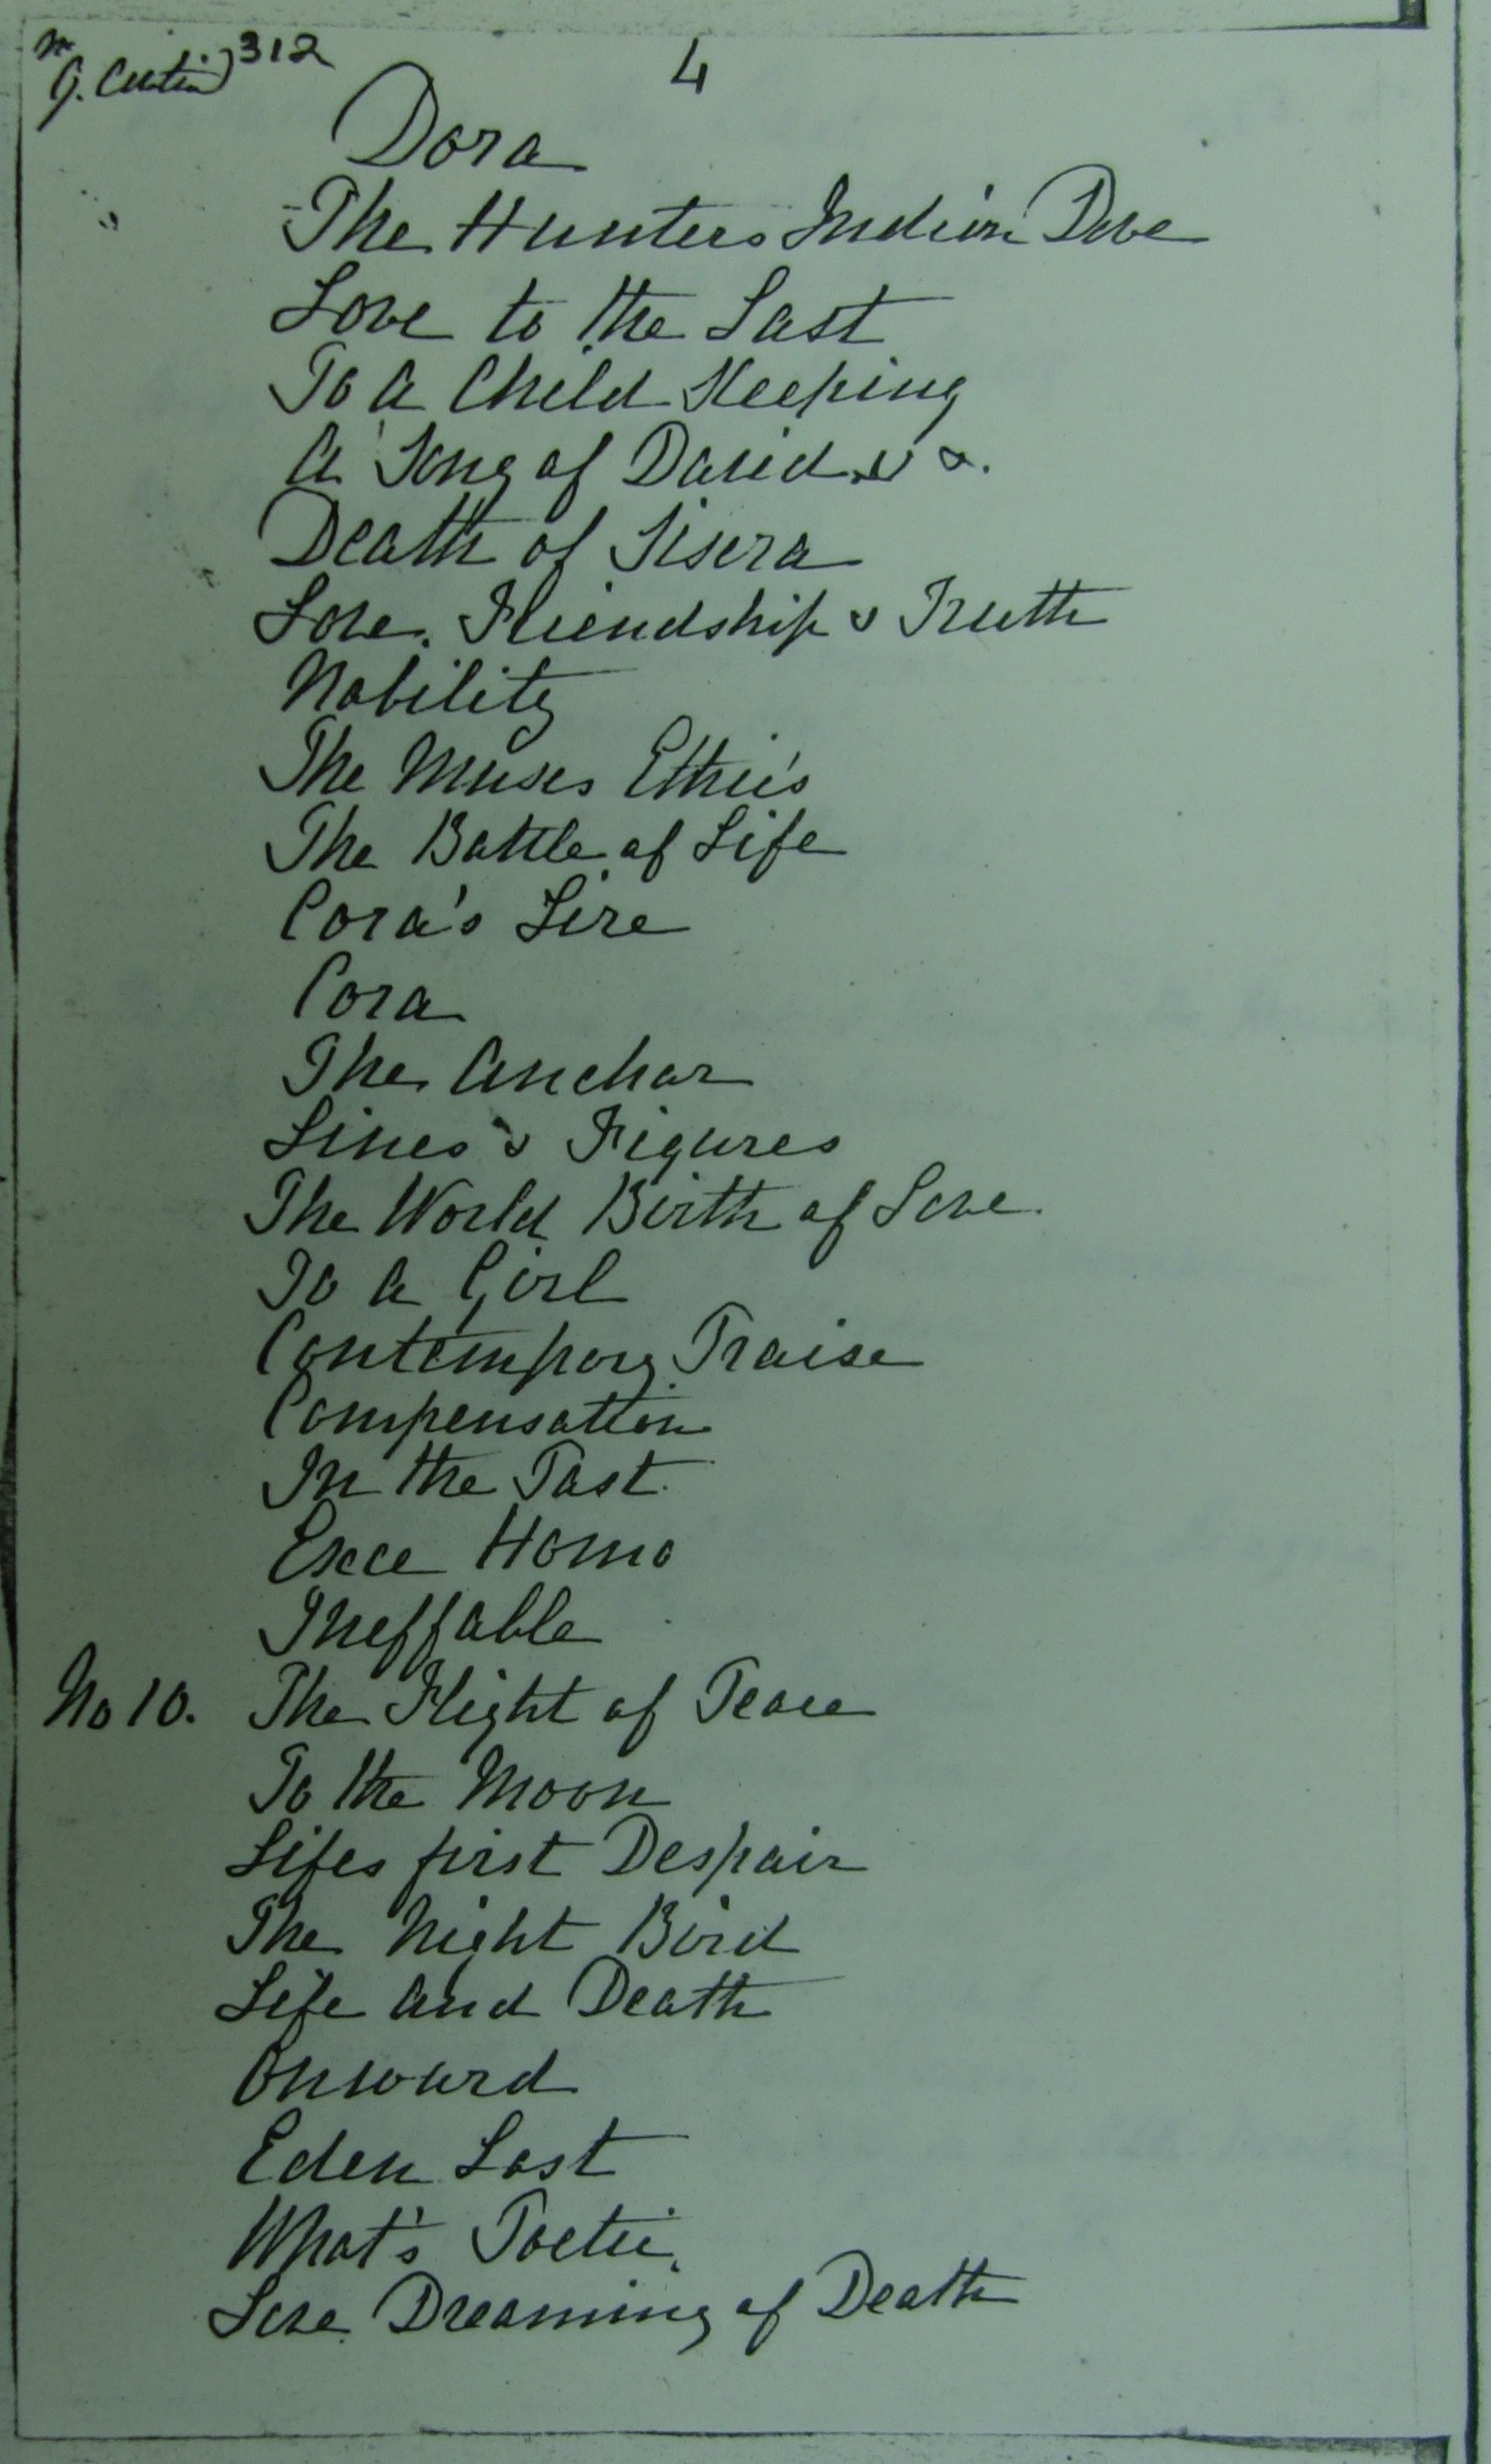 312
4
Dora
The Hunters Indian Dove
Love to the Last
To a Child Sleeping
A Song of David
Death of Sisera
Love, Friendship & Truth
Nobility
The Muses Ethics
The Battle of Life
Cora's Lire
Cora
The Anchor
Lines & Figures
The World Birth of Love.
To a Girl
Contempory Praise
Compensation
In the Past.
Ecce Homo
Ineffable
No 10. The Flight of Peace
To the Moon
Lifes first Despair
The Night Bird
Life and Death
Onward
Eden Lost
What's Poetic.
Love Dreaming of Death